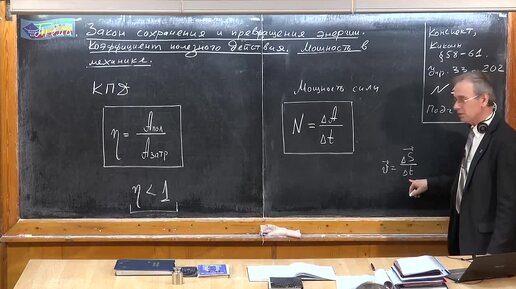 Закон сохранения и превращения энергии.
Коэффициент полезного действия. Мощность в
механике.
КПД
η = Aпол / Aзатр
η < 1
Мощность силы
N = ΔA / Δt
v⃗ = ΔS⃗ / Δt
Конспект,
Кикоин
§58-61
Упр. 33
N